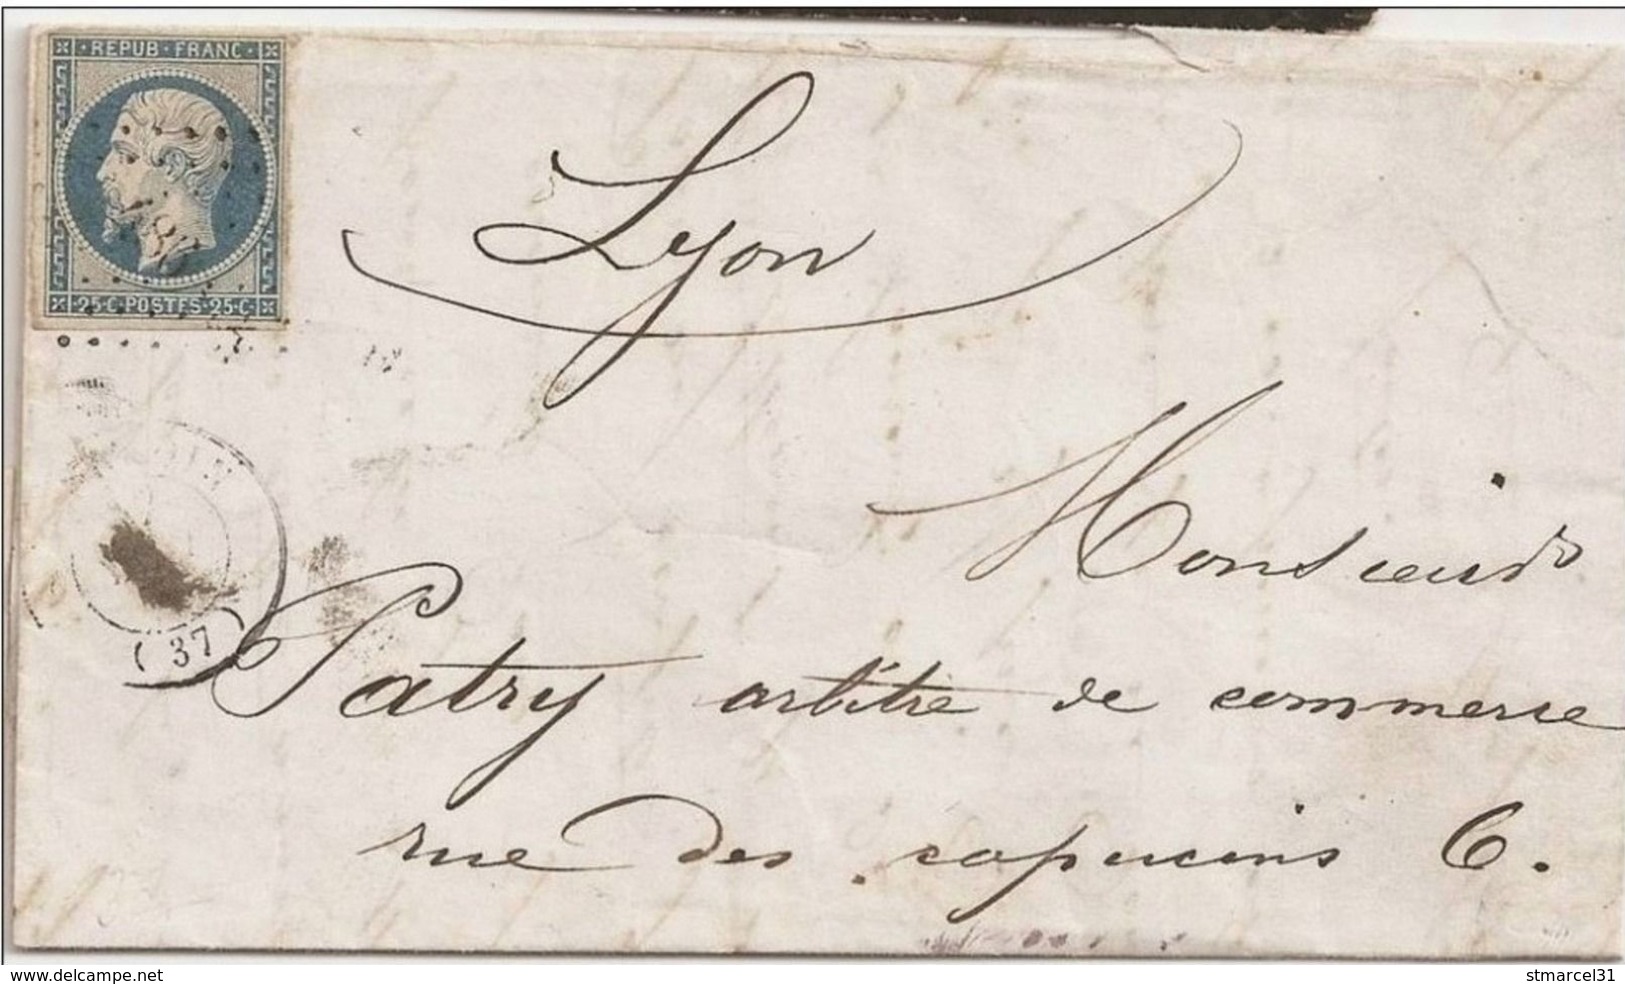 REPUB · FRANC ·
·25·C·POSTES·25·C·
Lyon
(37)
Monsieur
Patry arbitre de commerce
rue des capucins 6.
www.delcampe.net
stmarcel31